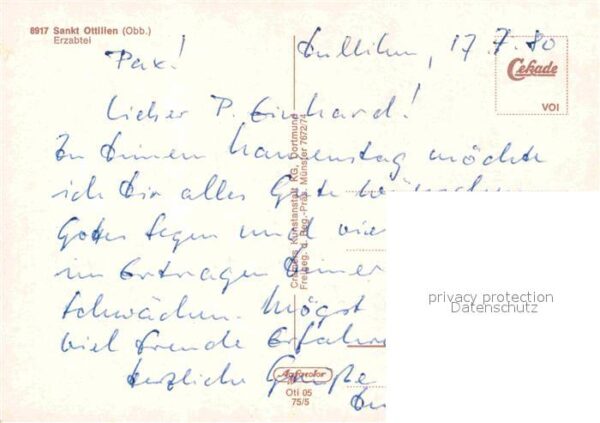 8917 Sankt Ottilien (Obb.)
Erzabtei
Pax!
Ottilien, 17.7.80
Cekade
VOI
Lieber P. Einhard!
Zu Deinem Namenstag möchte
ich Dir alles Gute wünschen
Gottes Segen und vie
im Ertragen Deiner
Schwächen. Mögst
viel Freude Erfahre
herzliche Grüße
Cramers Kunstanstalt KG, Dortmund
Freigeg. d. Reg.-Präs. Münster 7672/74
privacy protection
Datenschutz
Agfacolor
Oti 05
75/5